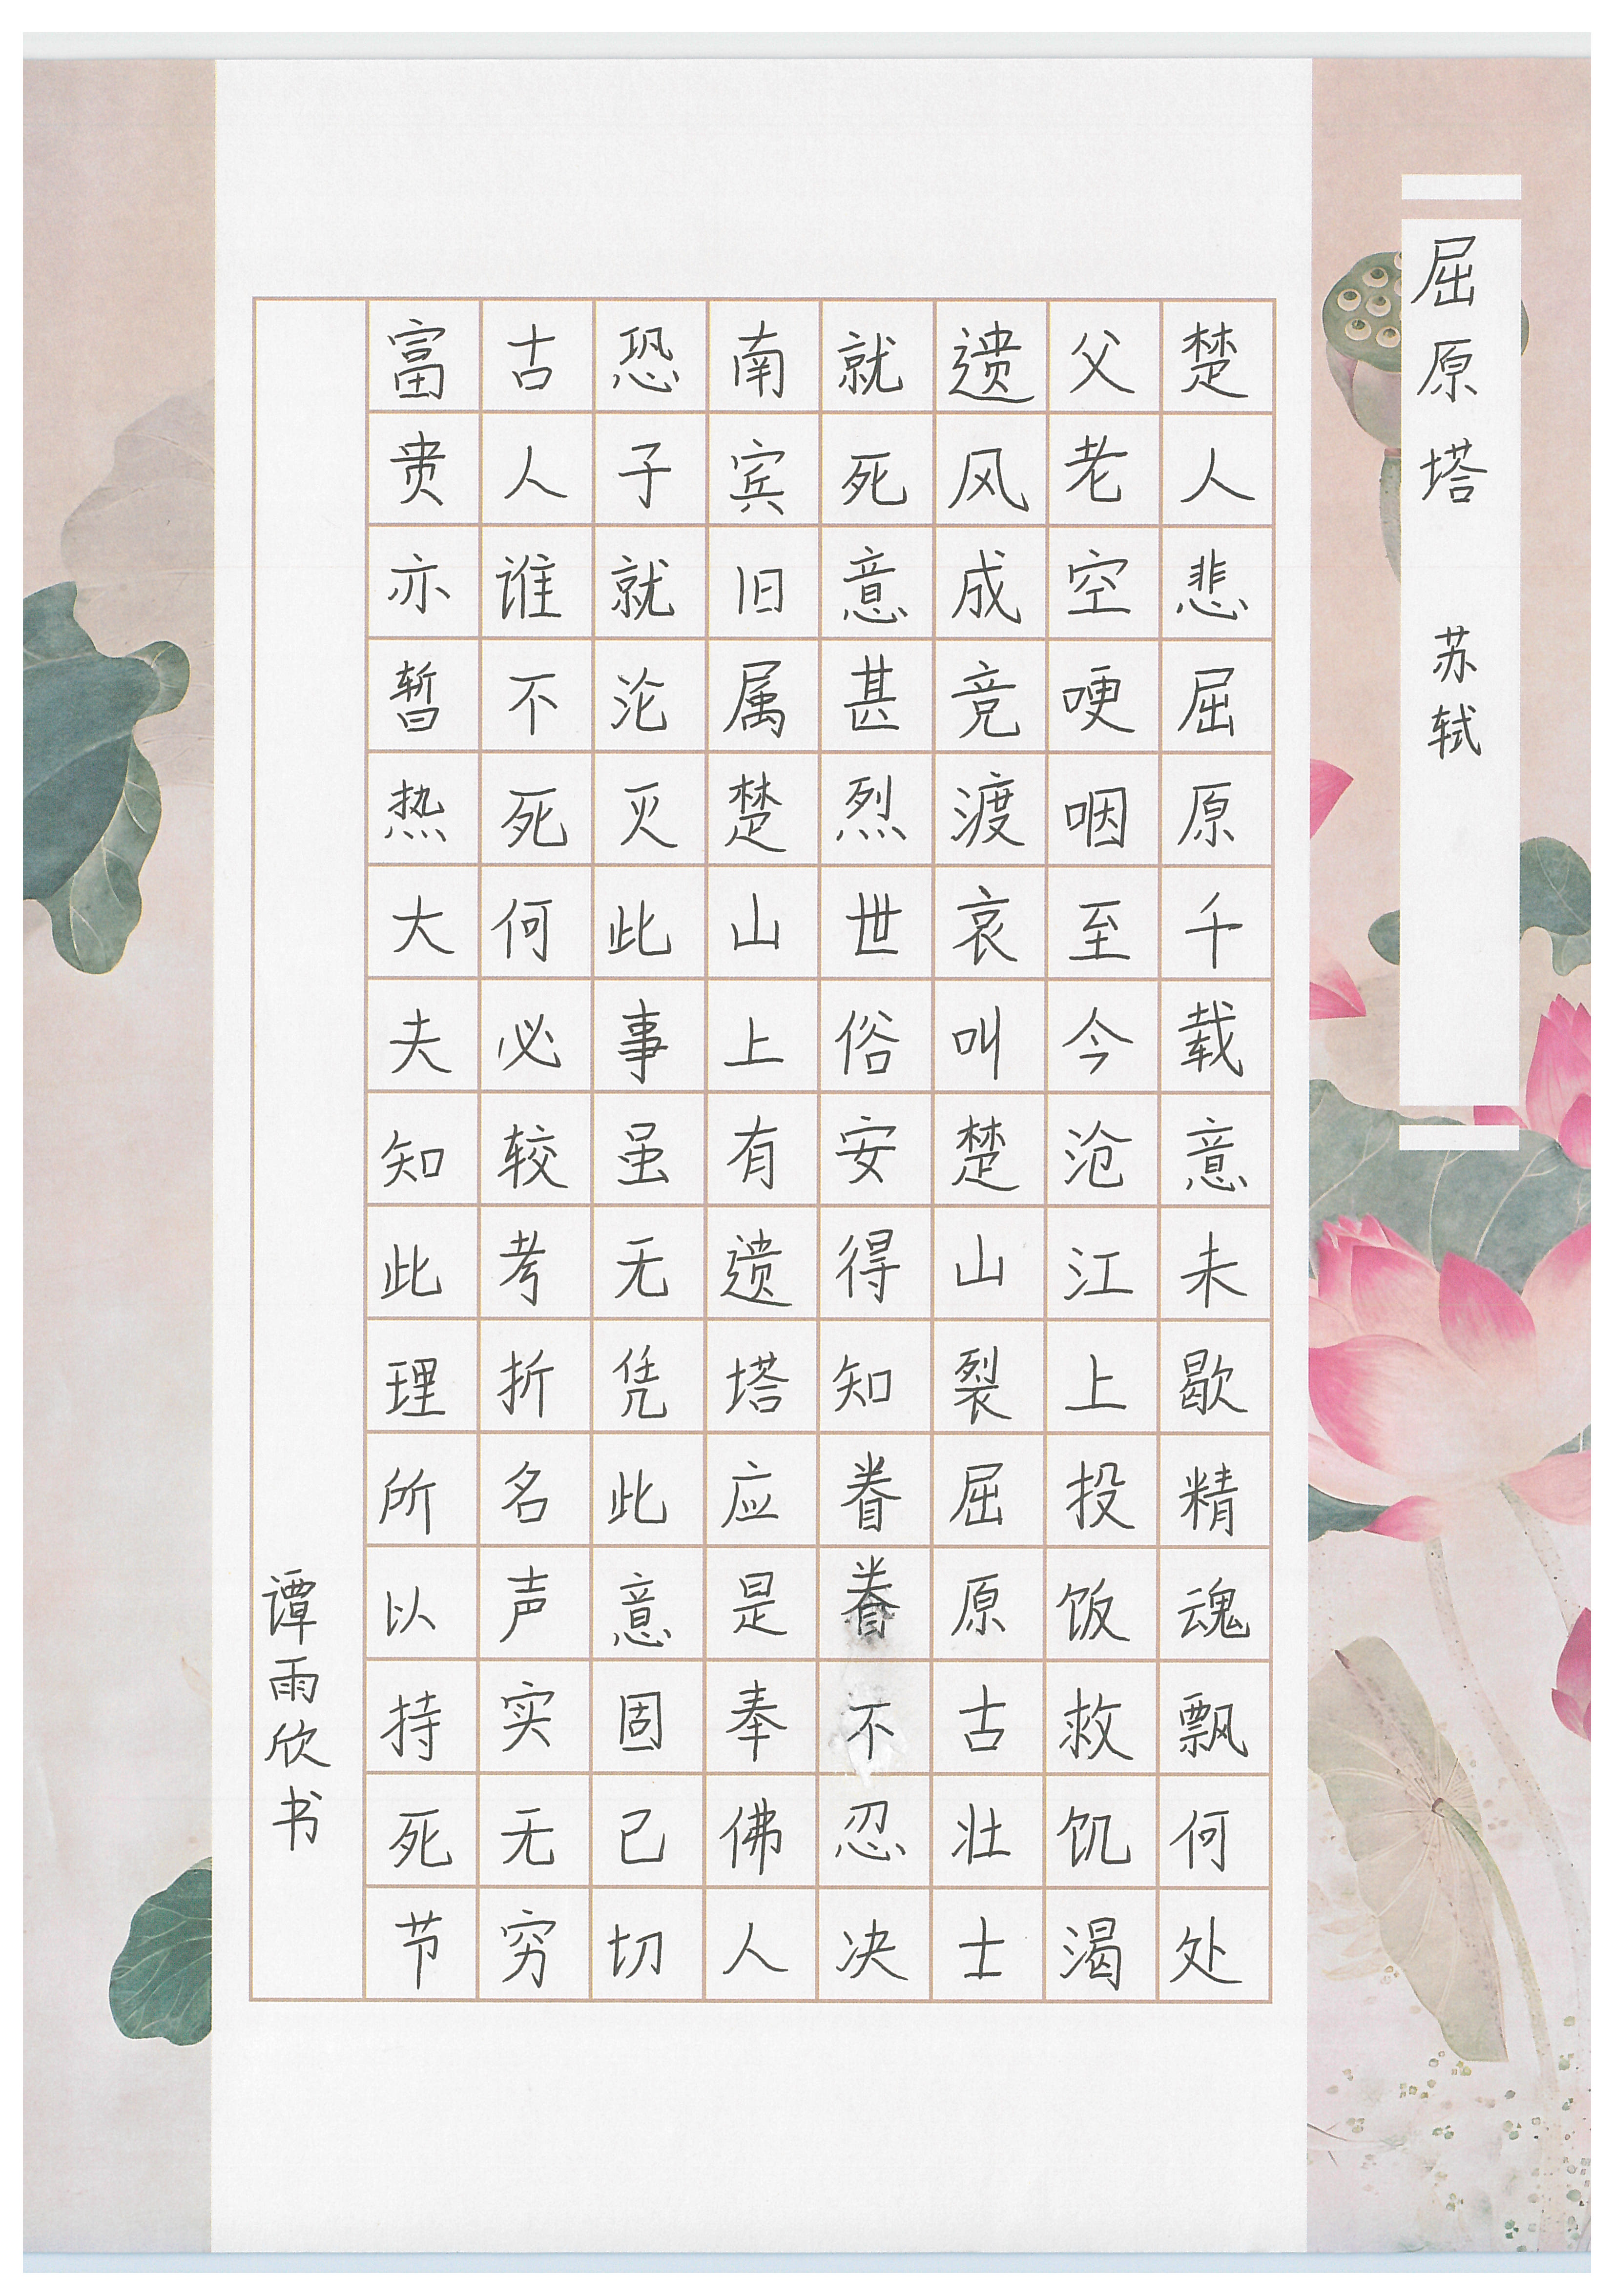 屈原塔 苏轼
楚人悲屈原千载意未歇精魂飘何处
父老空哽咽至今沧江上投饭救饥渴
遗风成竞渡哀叫楚山裂屈原古壮士
就死意甚烈世俗安得知眷眷不忍决
南宾旧属楚山上有遗塔应是奉佛人
恐子就沦灭此事虽无凭此意固已切
古人谁不死何必较考折名声实无穷
富贵亦暂热大夫知此理所以持死节
谭雨欣书